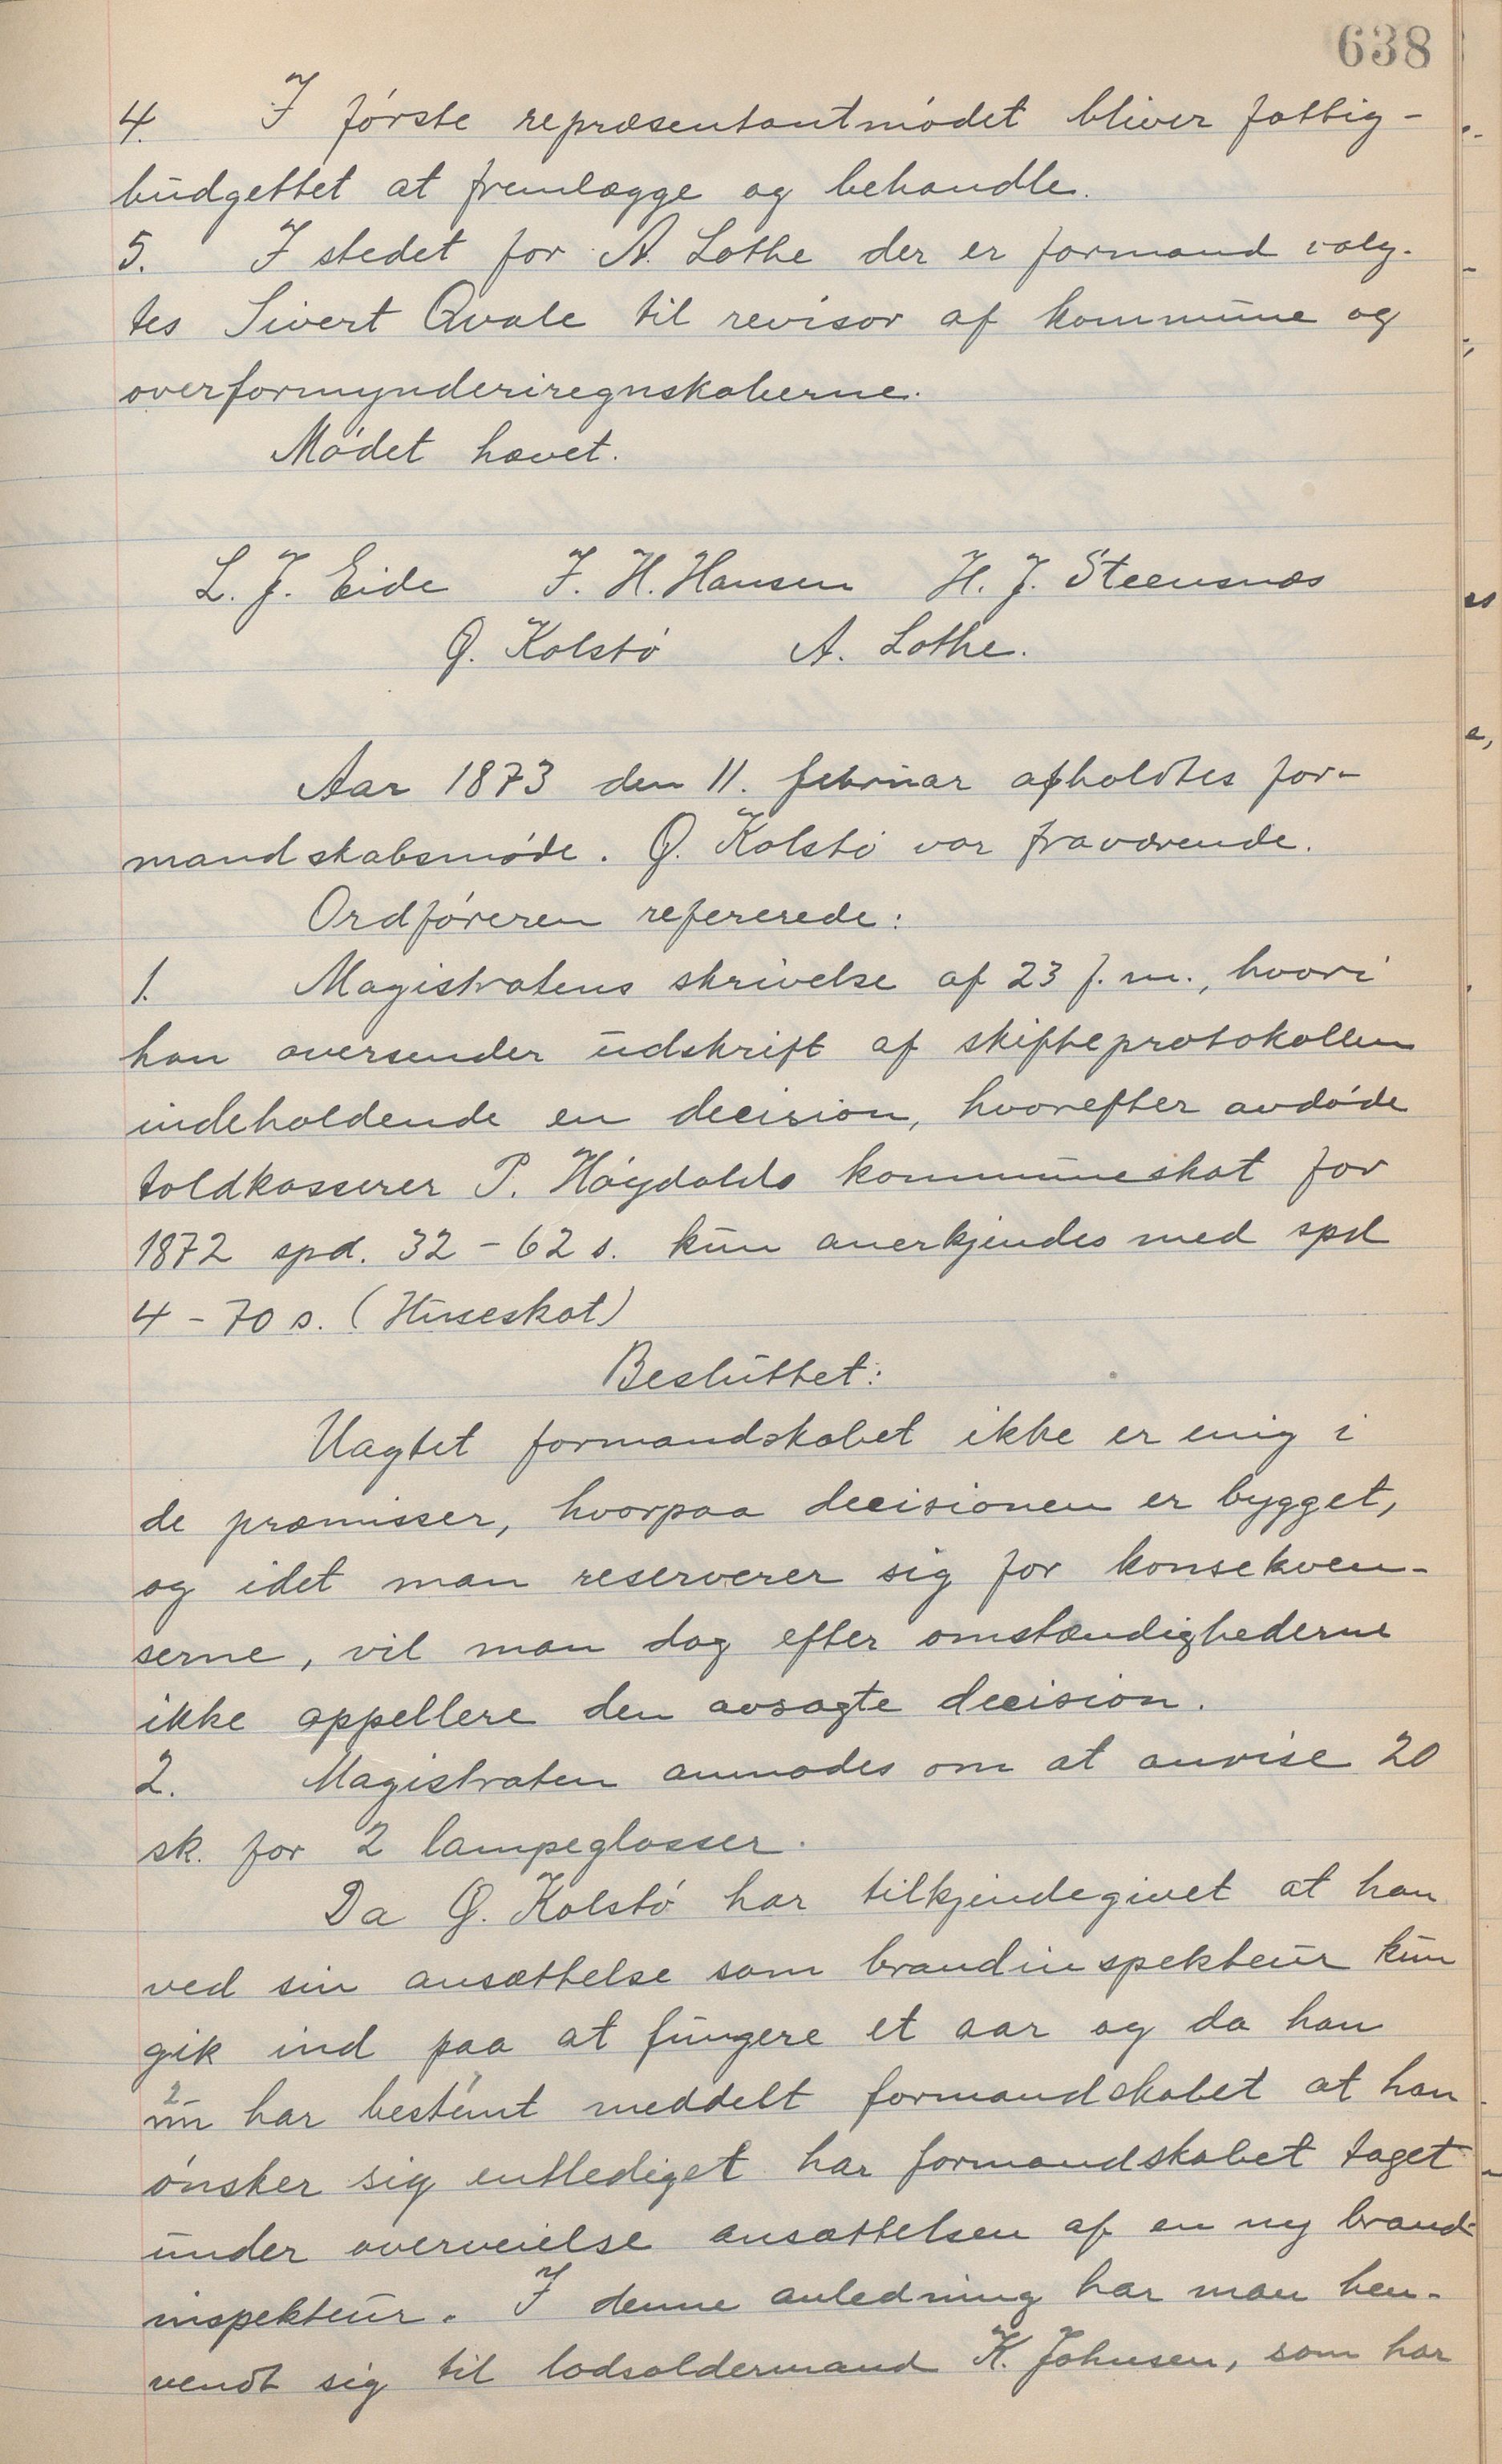 638
4. I første repræsentantmødet bliver fattig-
budgettet at fremlægge og behandle.
5. I stedet for A. Lothe der er formand valg-
tes Sivert Qvale til revisor af kommune og
overformynderiregnskaberne.
Mødet hævet.
L. J. Eide F. H. Hansen H. J. Steensnæs
Q. Kolstø A. Lothe.
Aar 1873 den 11. februar afholdtes for-
mandskabsmøde. Q. Kolstø var fraværende.
Ordføreren refererede:
1. Magistratens skrivelse af 23 f. m., hvori
han oversender udskrift af skifteprotokollen
indeholdende en decision, hvorefter avdøde
toldkasserer P. Høydahls kommuneskat for
1872 spd. 32 - 62 s. kun anerkjendes med spd
4 - 70 s. (Huseskat)
Besluttet:
Uagtet formandskabet ikke er enig i
de præmisser, hvorpaa decisionen er bygget,
og idet man reserverer sig for konsekven-
serne, vil man dog efter omstændighederne
ikke appellere den avsagte decision.
2. Magistraten anmodes om at anvise 20
sk. for 2 lampeglasser.
Da Q. Kolstø har tilkjendegivet at han
ved sin ansættelse som brandinspekteur kun
gik ind paa at fungere et aar og da han
nu har bestemt meddelt formandskabet at han
ønsker sig entlediget har formandskabet taget
under overveielse ansættelsen af en ny brand-
inspekteur. I denne anledning har man hen-
vendt sig til lodsoldermand K. Johnsen, som har